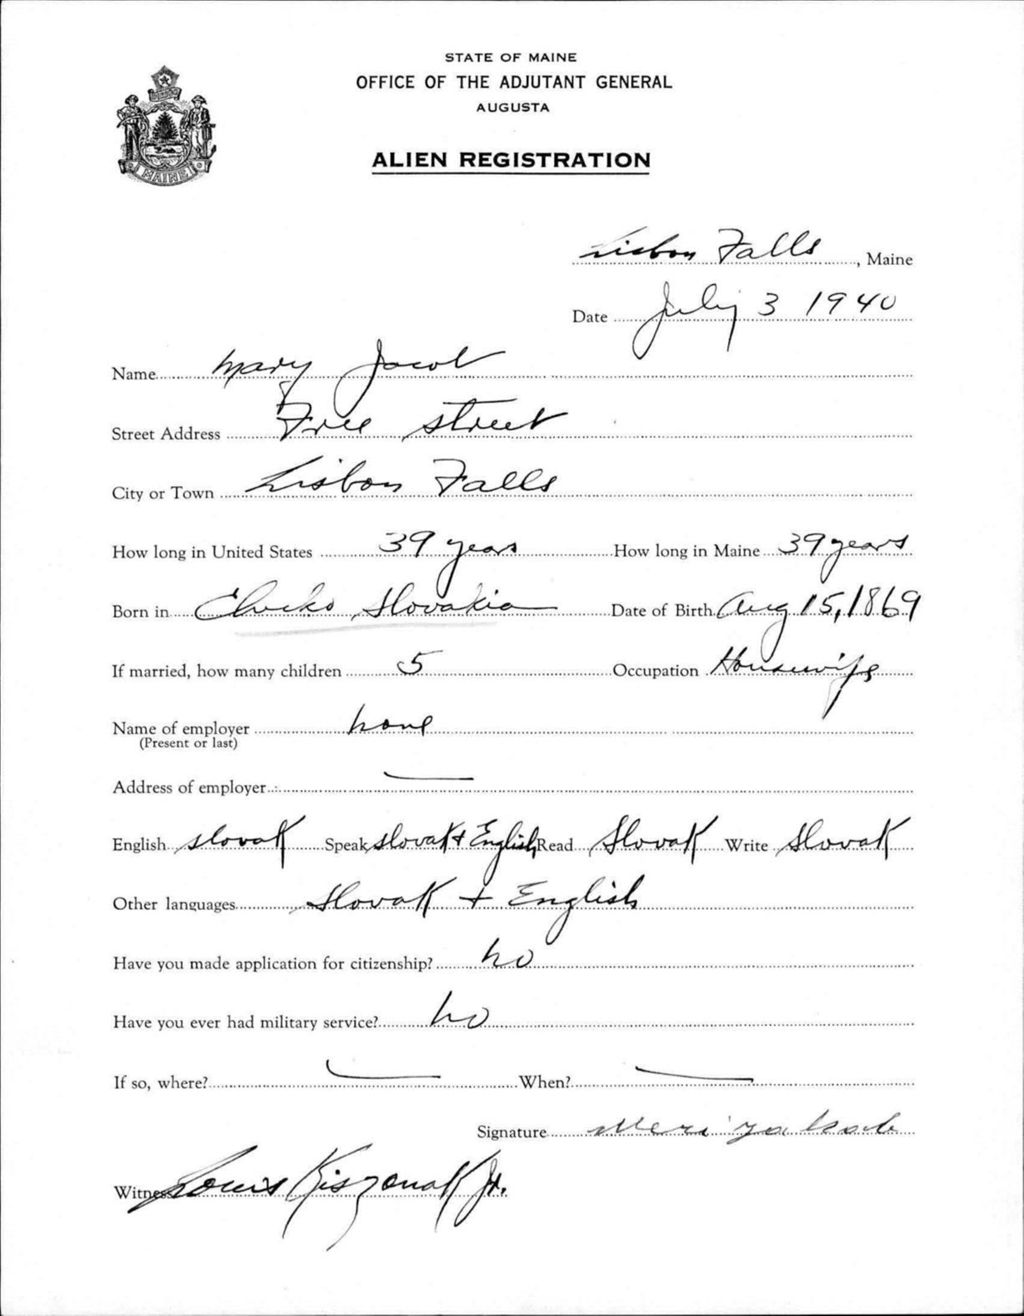 STATE OF MAINE
OFFICE OF THE ADJUTANT GENERAL
AUGUSTA
ALIEN REGISTRATION
MAINE
Lisbon Falls, Maine
Date July 3 1940
Name Mary Jacob
Street Address Free Street
City or Town Lisbon Falls
How long in United States 39 years How long in Maine 39 years
Born in Slovakia Date of Birth Aug 15, 1869
If married, how many children 5 Occupation Housewife
Name of employer none
(Present or last)
Address of employer —
English Slovak Speak Slovak + English Read Slovak Write Slovak
Other languages Slovak + English
Have you made application for citizenship? no
Have you ever had military service? no
If so, where? — When? —
Signature Meri
Witness Louis Kiszonak Jr.